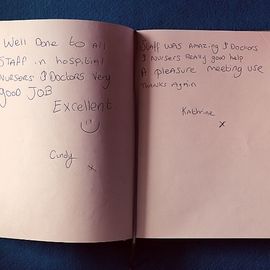 Well Done to all
STAFF in hospital
NURSERS & DOCTORS very
good JOB
Excellent
Cindy
x
STAFF WAS AMAZING & DOCTORS
& NURSERS REALLY good help
A pleasure meeting use
THANKS Again
Kathrine
x